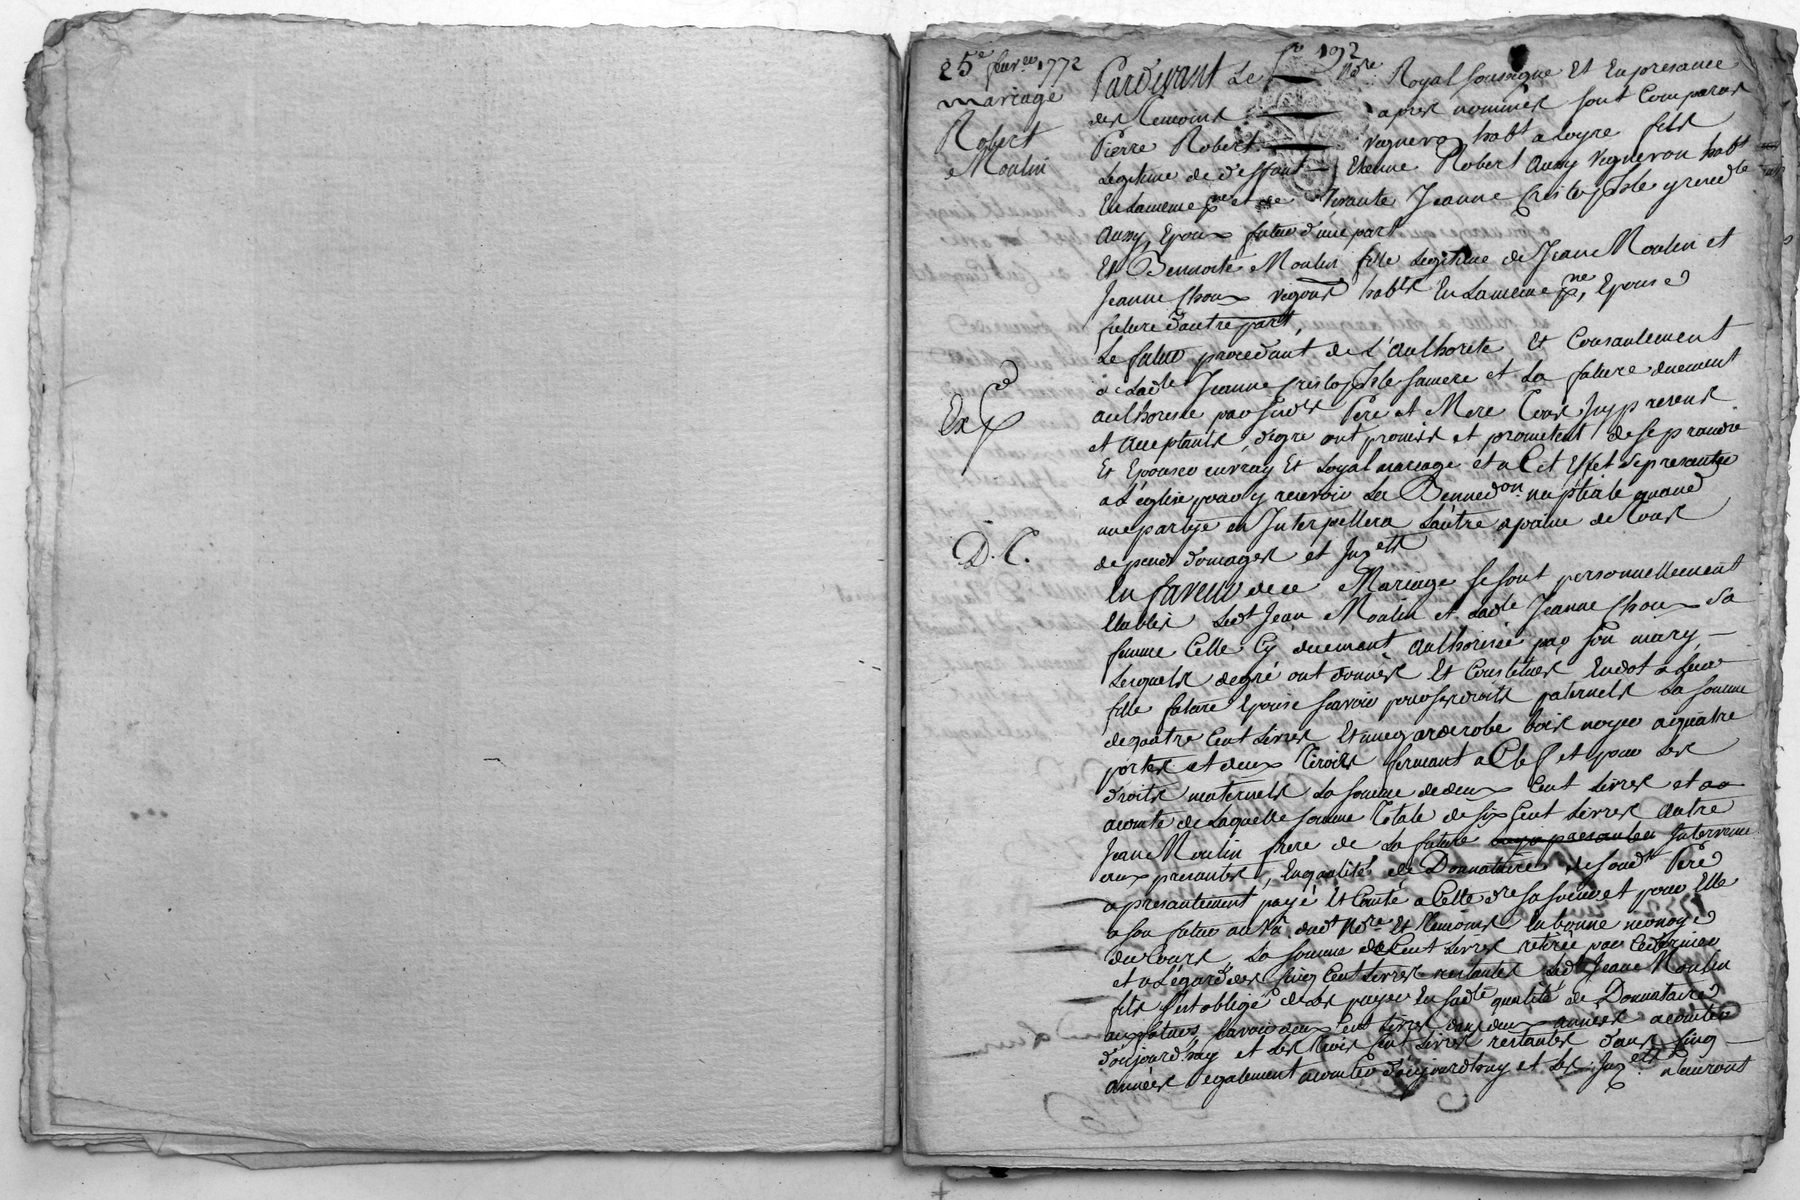 25e fevrer 1772
mariage
Robert
& Moulin
Exp
D. C.
fo 192
Pardevant Le Nore Royal soussigné Et En presance
des Temoins apres nommés sont Comparus
Pierre Robert vigneron habt a Loyre fils
Legitime de deffunt Etienne Robert Aussy vigneron habt
En la meme pne et de vivante Jeanne
Aussy, Epoux futur d'une part
Et Bennoite Moulin fille Legitime de Jean Moulin et
Jeanne Choux vigons habts En la meme pne, Epouse
future d'autre part,
Le futur procedant de L'authorité Et Consantement
de Ladte Jeanne sa mere et La future duement
authorisée par sesds Pere et Mere Tous Icy presens
et acceptants, de gre ont promis et promettent de se prandre
Et Epouser en vray Et Loyal mariage et a Cet Effet se presanter
a L'église pour y recevoir La Bennedon nuptiale quand
une partye en Interpellera L'autre a paine de Tous
depens domages et Inzets
En faveur de ce Mariage se sont personnellement
Etablis Ledt Jean Moulin et Ladte Jeanne Choux Sa
femme Celle Cy duement authorisée par son mary
Lesquels de gré ont donnés Et Constitués En dot a Leur
fille future Epouse scavoir pour ses droits paternels La somme
de quatre Cent Livres Et une garderobe bois noyer a quatre
portes et deux Tiroirs fermant a Clef et pour Les
droits maternels La somme de deux Cent Livres et
acomte de Laquelle somme Totale de six Cent Livres autre
Jean Moulin frere de La future Intervenu
aux presantes, En qualité de Donnataire de sondt Pere
a presantement payé Et Comté a Cette dre sa soeur et pour Elle
a son futur au vû dudt Nore Et Temoins En bonne monoye
du Cours, La somme de Cent Livres retirée par Ce dernier
et a L'égard des Cinq Cent Livres restantes Ledt Jean Moulin
fils s'est obligé de Les payer En sadte qualité de Donnataire
aux futurs, scavoir deux Cent Livres dans deux années a comter
d'aujourdhuy et Les Trois Cent Livres restantes dans Cinq
années egalement a comter d'aujourdhuy et Les Inzets n'auront